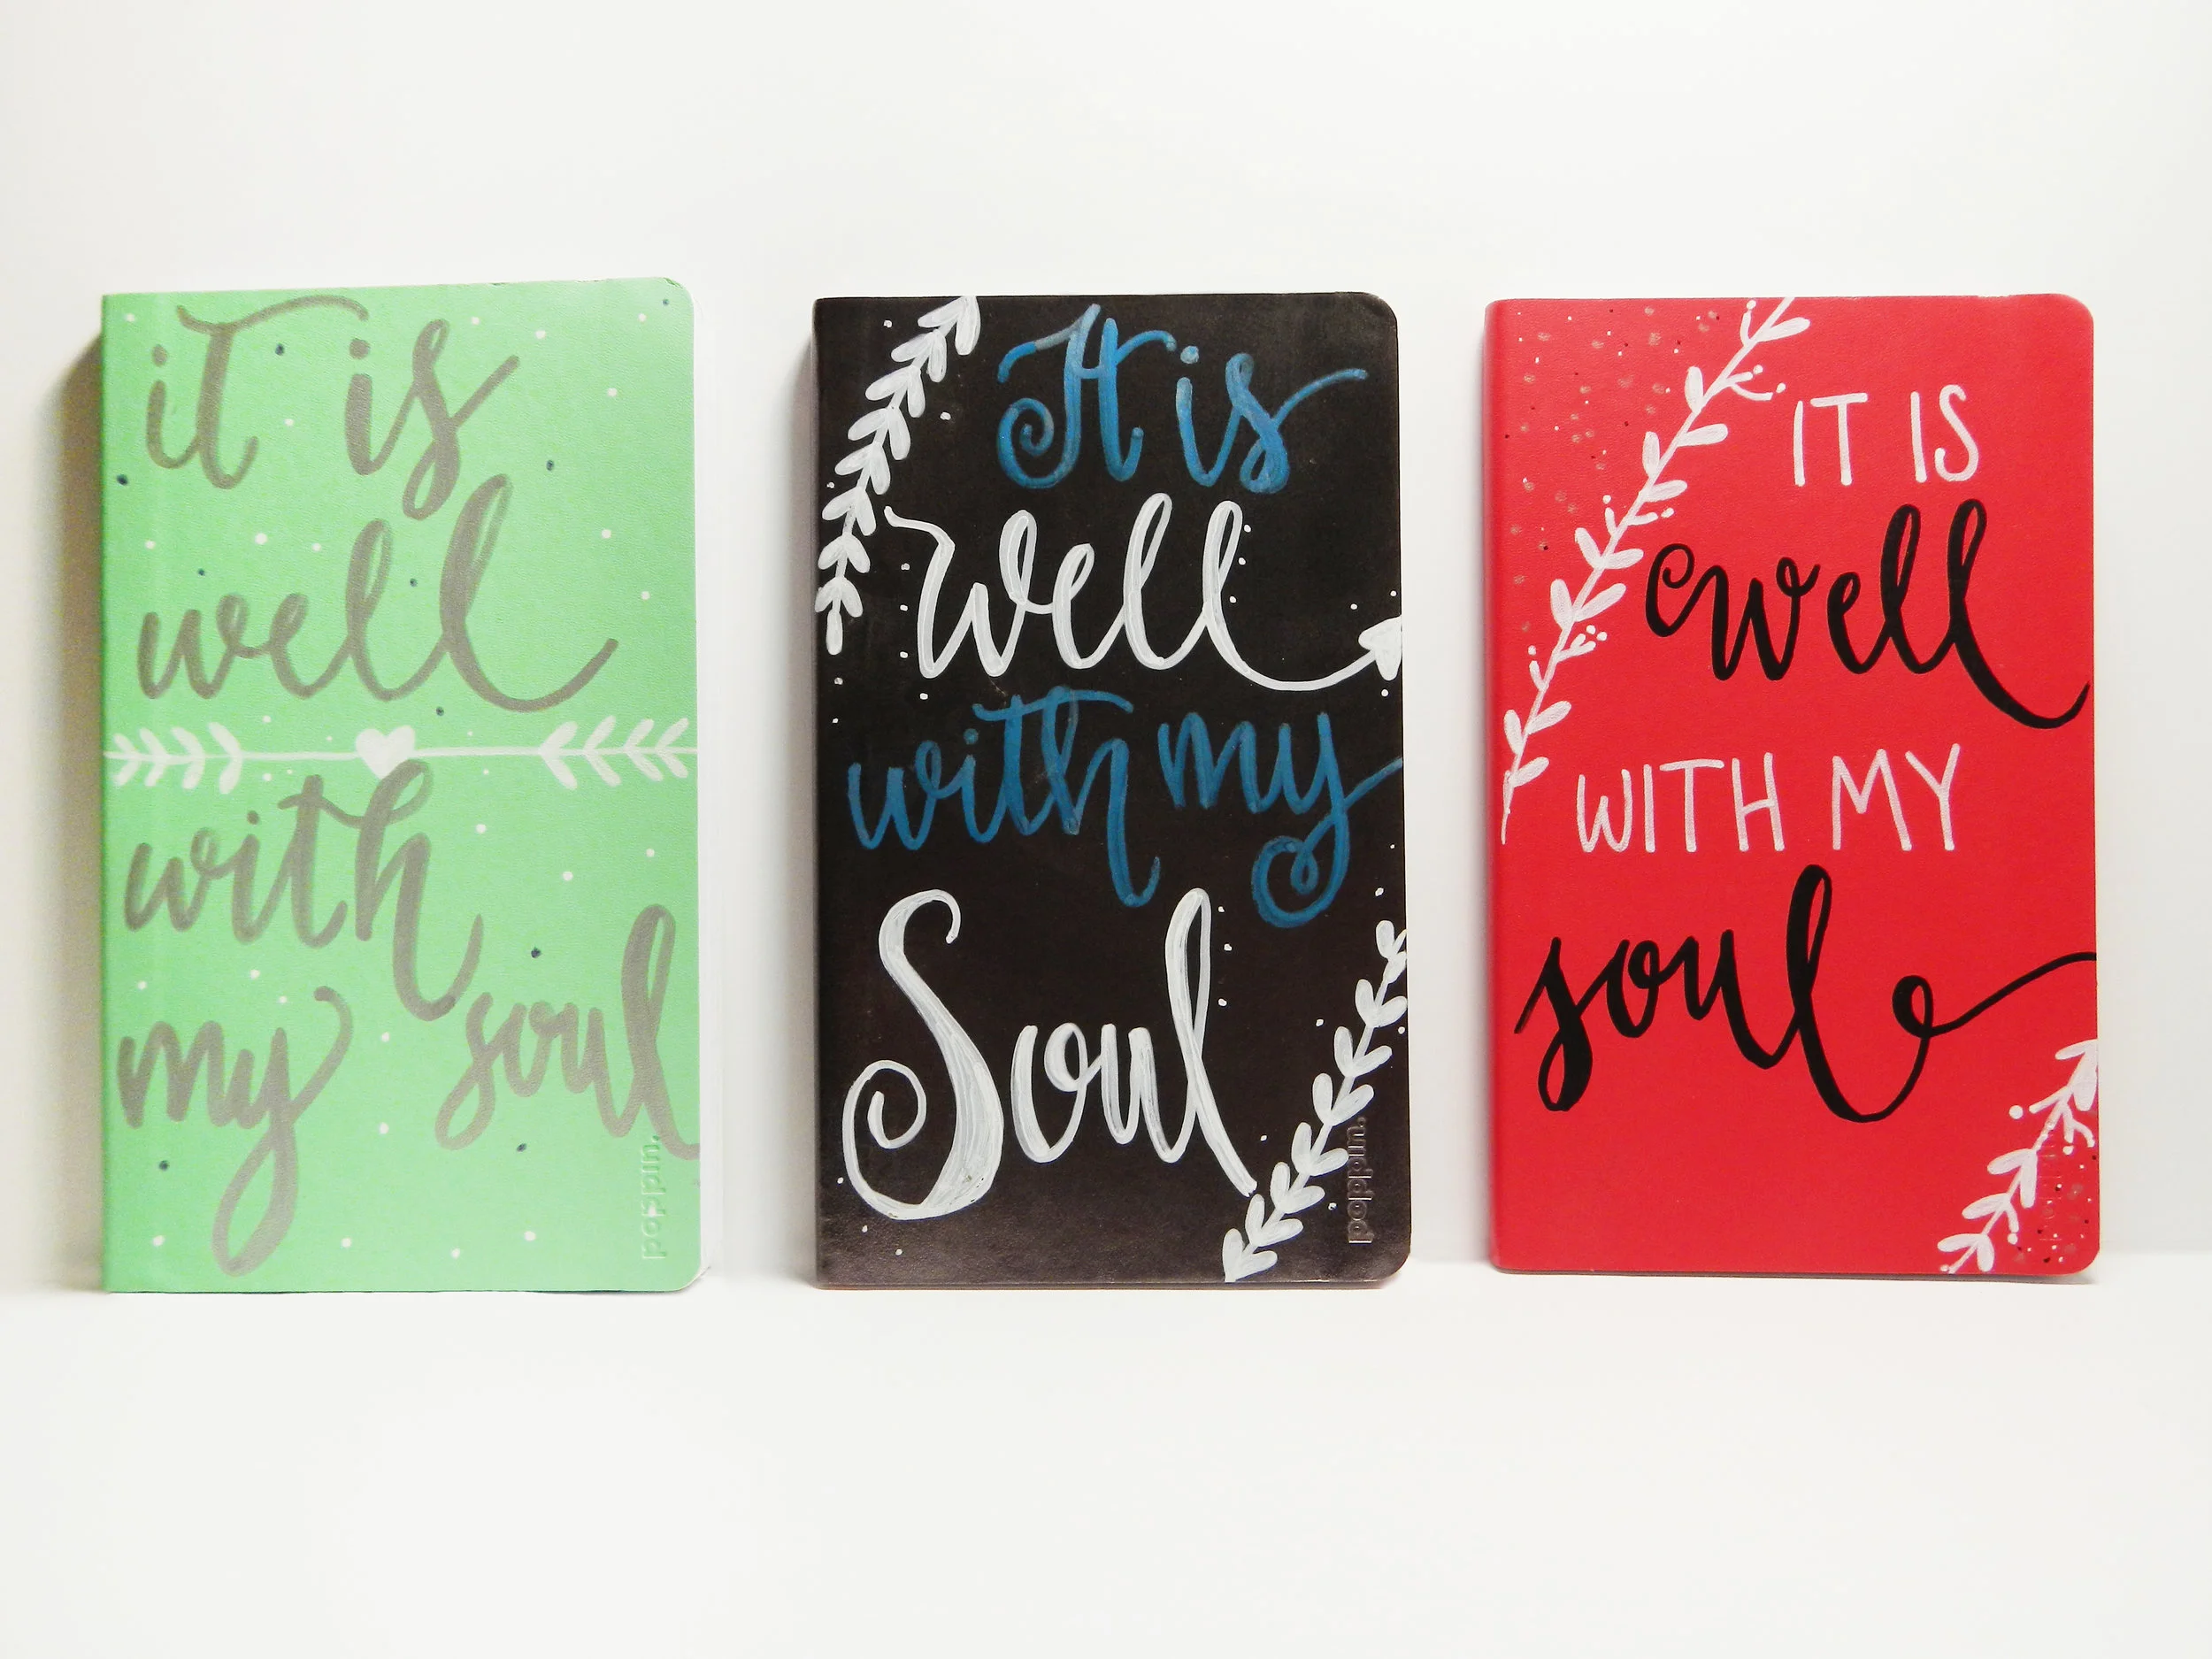 it is
well
with
my soul
poppin.
It is
well
with my
Soul
poppin.
IT IS
well
WITH MY
soul